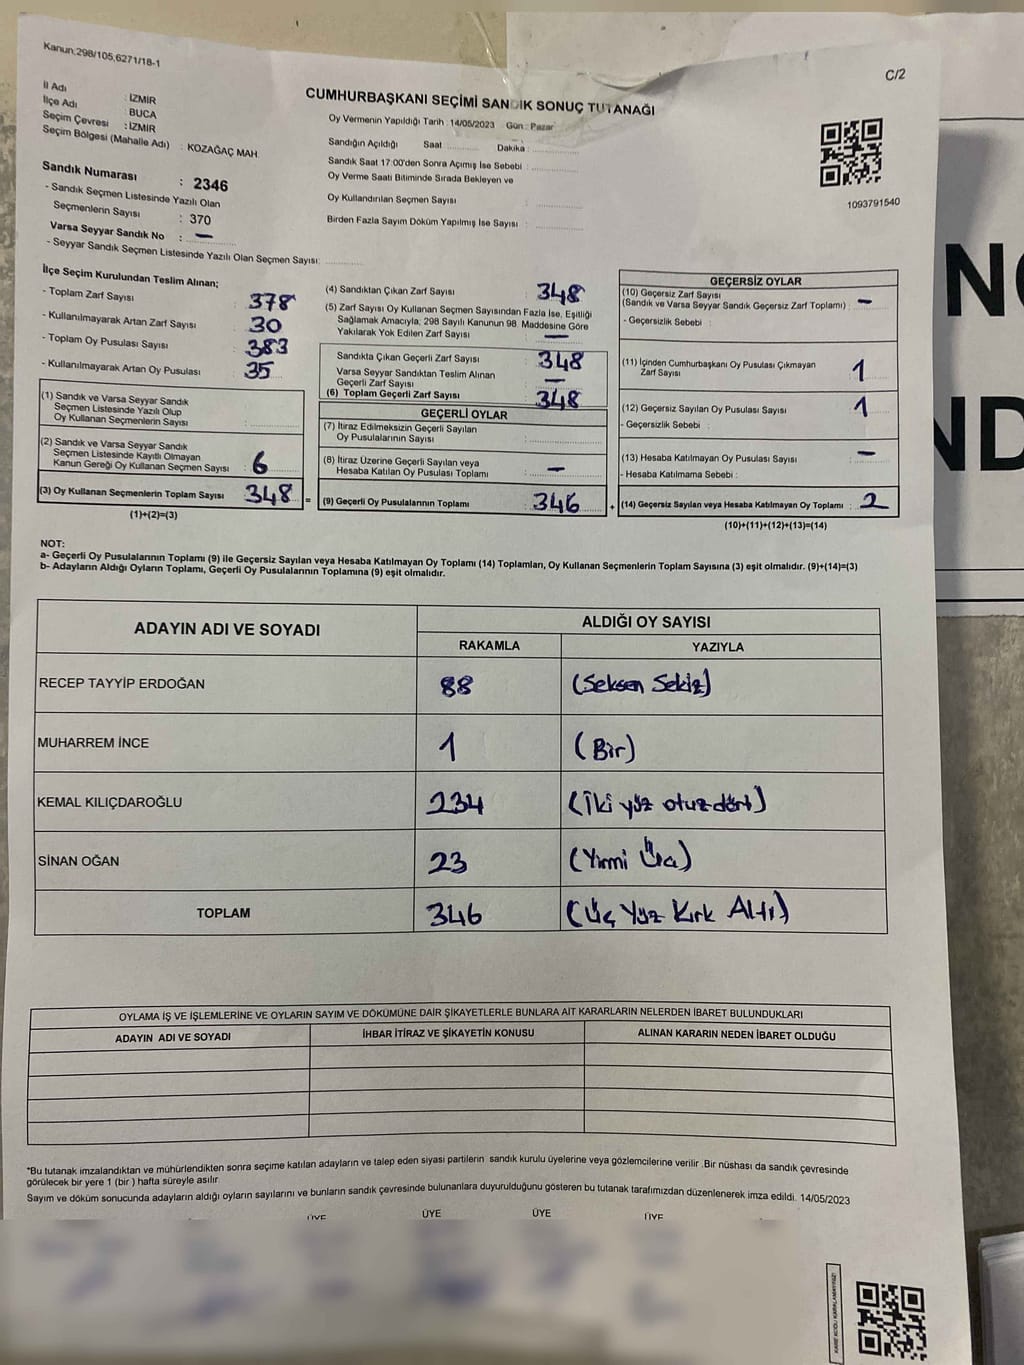 Kanun;298/105,6271/18-1
C/2
CUMHURBAŞKANI SEÇİMİ SANDIK SONUÇ TUTANAĞI
İl Adı : İZMİR
İlçe Adı : BUCA
Seçim Çevresi : İZMİR
Seçim Bölgesi (Mahalle Adı) : KOZAĞAÇ MAH
Oy Vermenin Yapıldığı Tarih : 14/05/2023 Gün : Pazar
Sandığın Açıldığı Saat Dakika :
Sandık Saat 17:00'den Sonra Açımış İse Sebebi :
Oy Verme Saati Bitiminde Sırada Bekleyen ve
Oy Kullandırılan Seçmen Sayısı :
Birden Fazla Sayım Döküm Yapılmış İse Sayısı :
1093791540
Sandık Numarası : 2346
- Sandık Seçmen Listesinde Yazılı Olan
Seçmenlerin Sayısı : 370
Varsa Seyyar Sandık No : —
- Seyyar Sandık Seçmen Listesinde Yazılı Olan Seçmen Sayısı:
İlçe Seçim Kurulundan Teslim Alınan;
- Toplam Zarf Sayısı : 378
- Kullanılmayarak Artan Zarf Sayısı : 30
- Toplam Oy Pusulası Sayısı : 383
- Kullanılmayarak Artan Oy Pusulası : 35
(1) Sandık ve Varsa Seyyar Sandık
Seçmen Listesinde Yazılı Olup
Oy Kullanan Seçmenlerin Sayısı :
(2) Sandık ve Varsa Seyyar Sandık
Seçmen Listesinde Kayıtlı Olmayan
Kanun Gereği Oy Kullanan Seçmen Sayısı : 6
(3) Oy Kullanan Seçmenlerin Toplam Sayısı : 348 =
(1)+(2)=(3)
(4) Sandıktan Çıkan Zarf Sayısı : 348
(5) Zarf Sayısı Oy Kullanan Seçmen Sayısından Fazla İse, Eşitliği
Sağlamak Amacıyla, 298 Sayılı Kanunun 98. Maddesine Göre
Yakılarak Yok Edilen Zarf Sayısı : —
Sandıkta Çıkan Geçerli Zarf Sayısı : 348
Varsa Seyyar Sandıktan Teslim Alınan
Geçerli Zarf Sayısı : —
(6) Toplam Geçerli Zarf Sayısı : 348
GEÇERLİ OYLAR
(7) İtiraz Edilmeksizin Geçerli Sayılan
Oy Pusulalarının Sayısı :
(8) İtiraz Üzerine Geçerli Sayılan veya
Hesaba Katılan Oy Pusulası Toplamı : —
(9) Geçerli Oy Pusulalarının Toplamı : 346 +
GEÇERSİZ OYLAR
(10) Geçersiz Zarf Sayısı
(Sandık ve Varsa Seyyar Sandık Geçersiz Zarf Toplamı) : —
- Geçersizlik Sebebi :
(11) İçinden Cumhurbaşkanı Oy Pusulası Çıkmayan
Zarf Sayısı : 1
(12) Geçersiz Sayılan Oy Pusulası Sayısı : 1
- Geçersizlik Sebebi :
(13) Hesaba Katılmayan Oy Pusulası Sayısı : —
- Hesaba Katılmama Sebebi :
(14) Geçersiz Sayılan veya Hesaba Katılmayan Oy Toplamı : 2
(10)+(11)+(12)+(13)=(14)
NOT:
a- Geçerli Oy Pusulalarının Toplamı (9) ile Geçersiz Sayılan veya Hesaba Katılmayan Oy Toplamı (14) Toplamları, Oy Kullanan Seçmenlerin Toplam Sayısına (3) eşit olmalıdır. (9)+(14)=(3)
b- Adayların Aldığı Oyların Toplamı, Geçerli Oy Pusulalarının Toplamına (9) eşit olmalıdır.
ADAYIN ADI VE SOYADI
ALDIĞI OY SAYISI
RAKAMLA YAZIYLA
RECEP TAYYİP ERDOĞAN 88 (Seksen Sekiz)
MUHARREM İNCE 1 (Bir)
KEMAL KILIÇDAROĞLU 234 (İki yüz otuz dört)
SİNAN OĞAN 23 (Yirmi Üç)
TOPLAM 346 (Üç Yüz Kırk Altı)
OYLAMA İŞ VE İŞLEMLERİNE VE OYLARIN SAYIM VE DÖKÜMÜNE DAİR ŞİKAYETLERLE BUNLARA AİT KARARLARIN NELERDEN İBARET BULUNDUKLARI
ADAYIN ADI VE SOYADI İHBAR İTİRAZ VE ŞİKAYETİN KONUSU ALINAN KARARIN NEDEN İBARET OLDUĞU
*Bu tutanak imzalandıktan ve mühürlendikten sonra seçime katılan adayların ve talep eden siyasi partilerin sandık kurulu üyelerine veya gözlemcilerine verilir .Bir nüshası da sandık çevresinde
görülecek bir yere 1 (bir ) hafta süreyle asılır.
Sayım ve döküm sonucunda adayların aldığı oyların sayılarını ve bunların sandık çevresinde bulunanlara duyurulduğunu gösteren bu tutanak tarafımızdan düzenlenerek imza edildi. 14/05/2023
ÜYE ÜYE ÜYE ÜYE